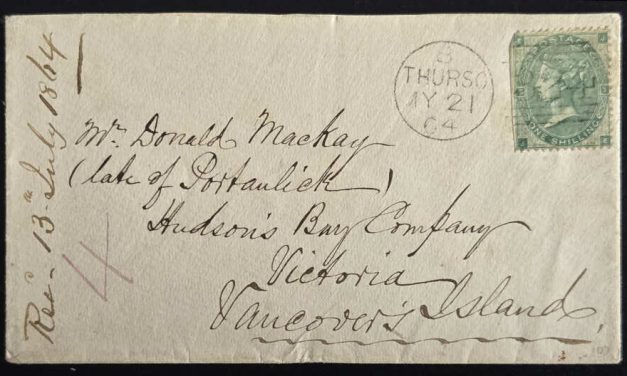 Recd 13th July 1864
B
THURSO
MY 21
64
POSTAGE
ONE SHILLING
Mr Donald Mackay
(late of Portaulick)
Hudson's Bay Company
Victoria
Vancover's Island.
4